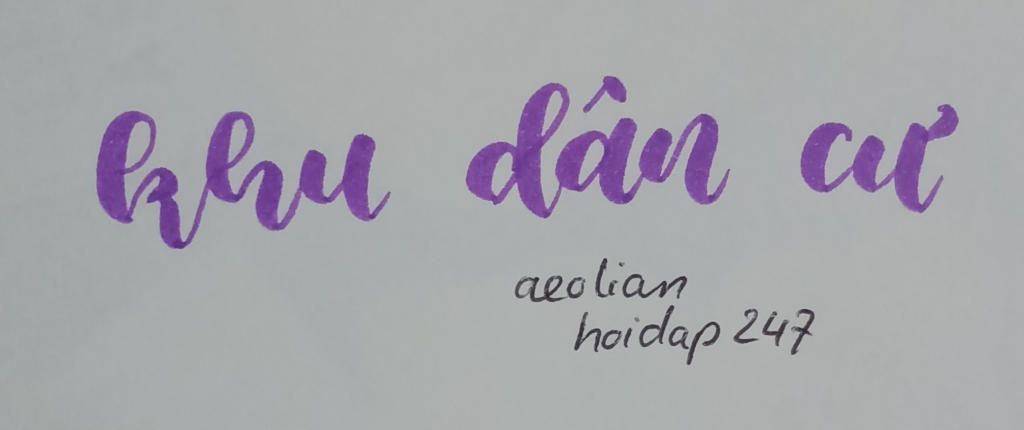 khu dân cư
aeolian
hoidap 247